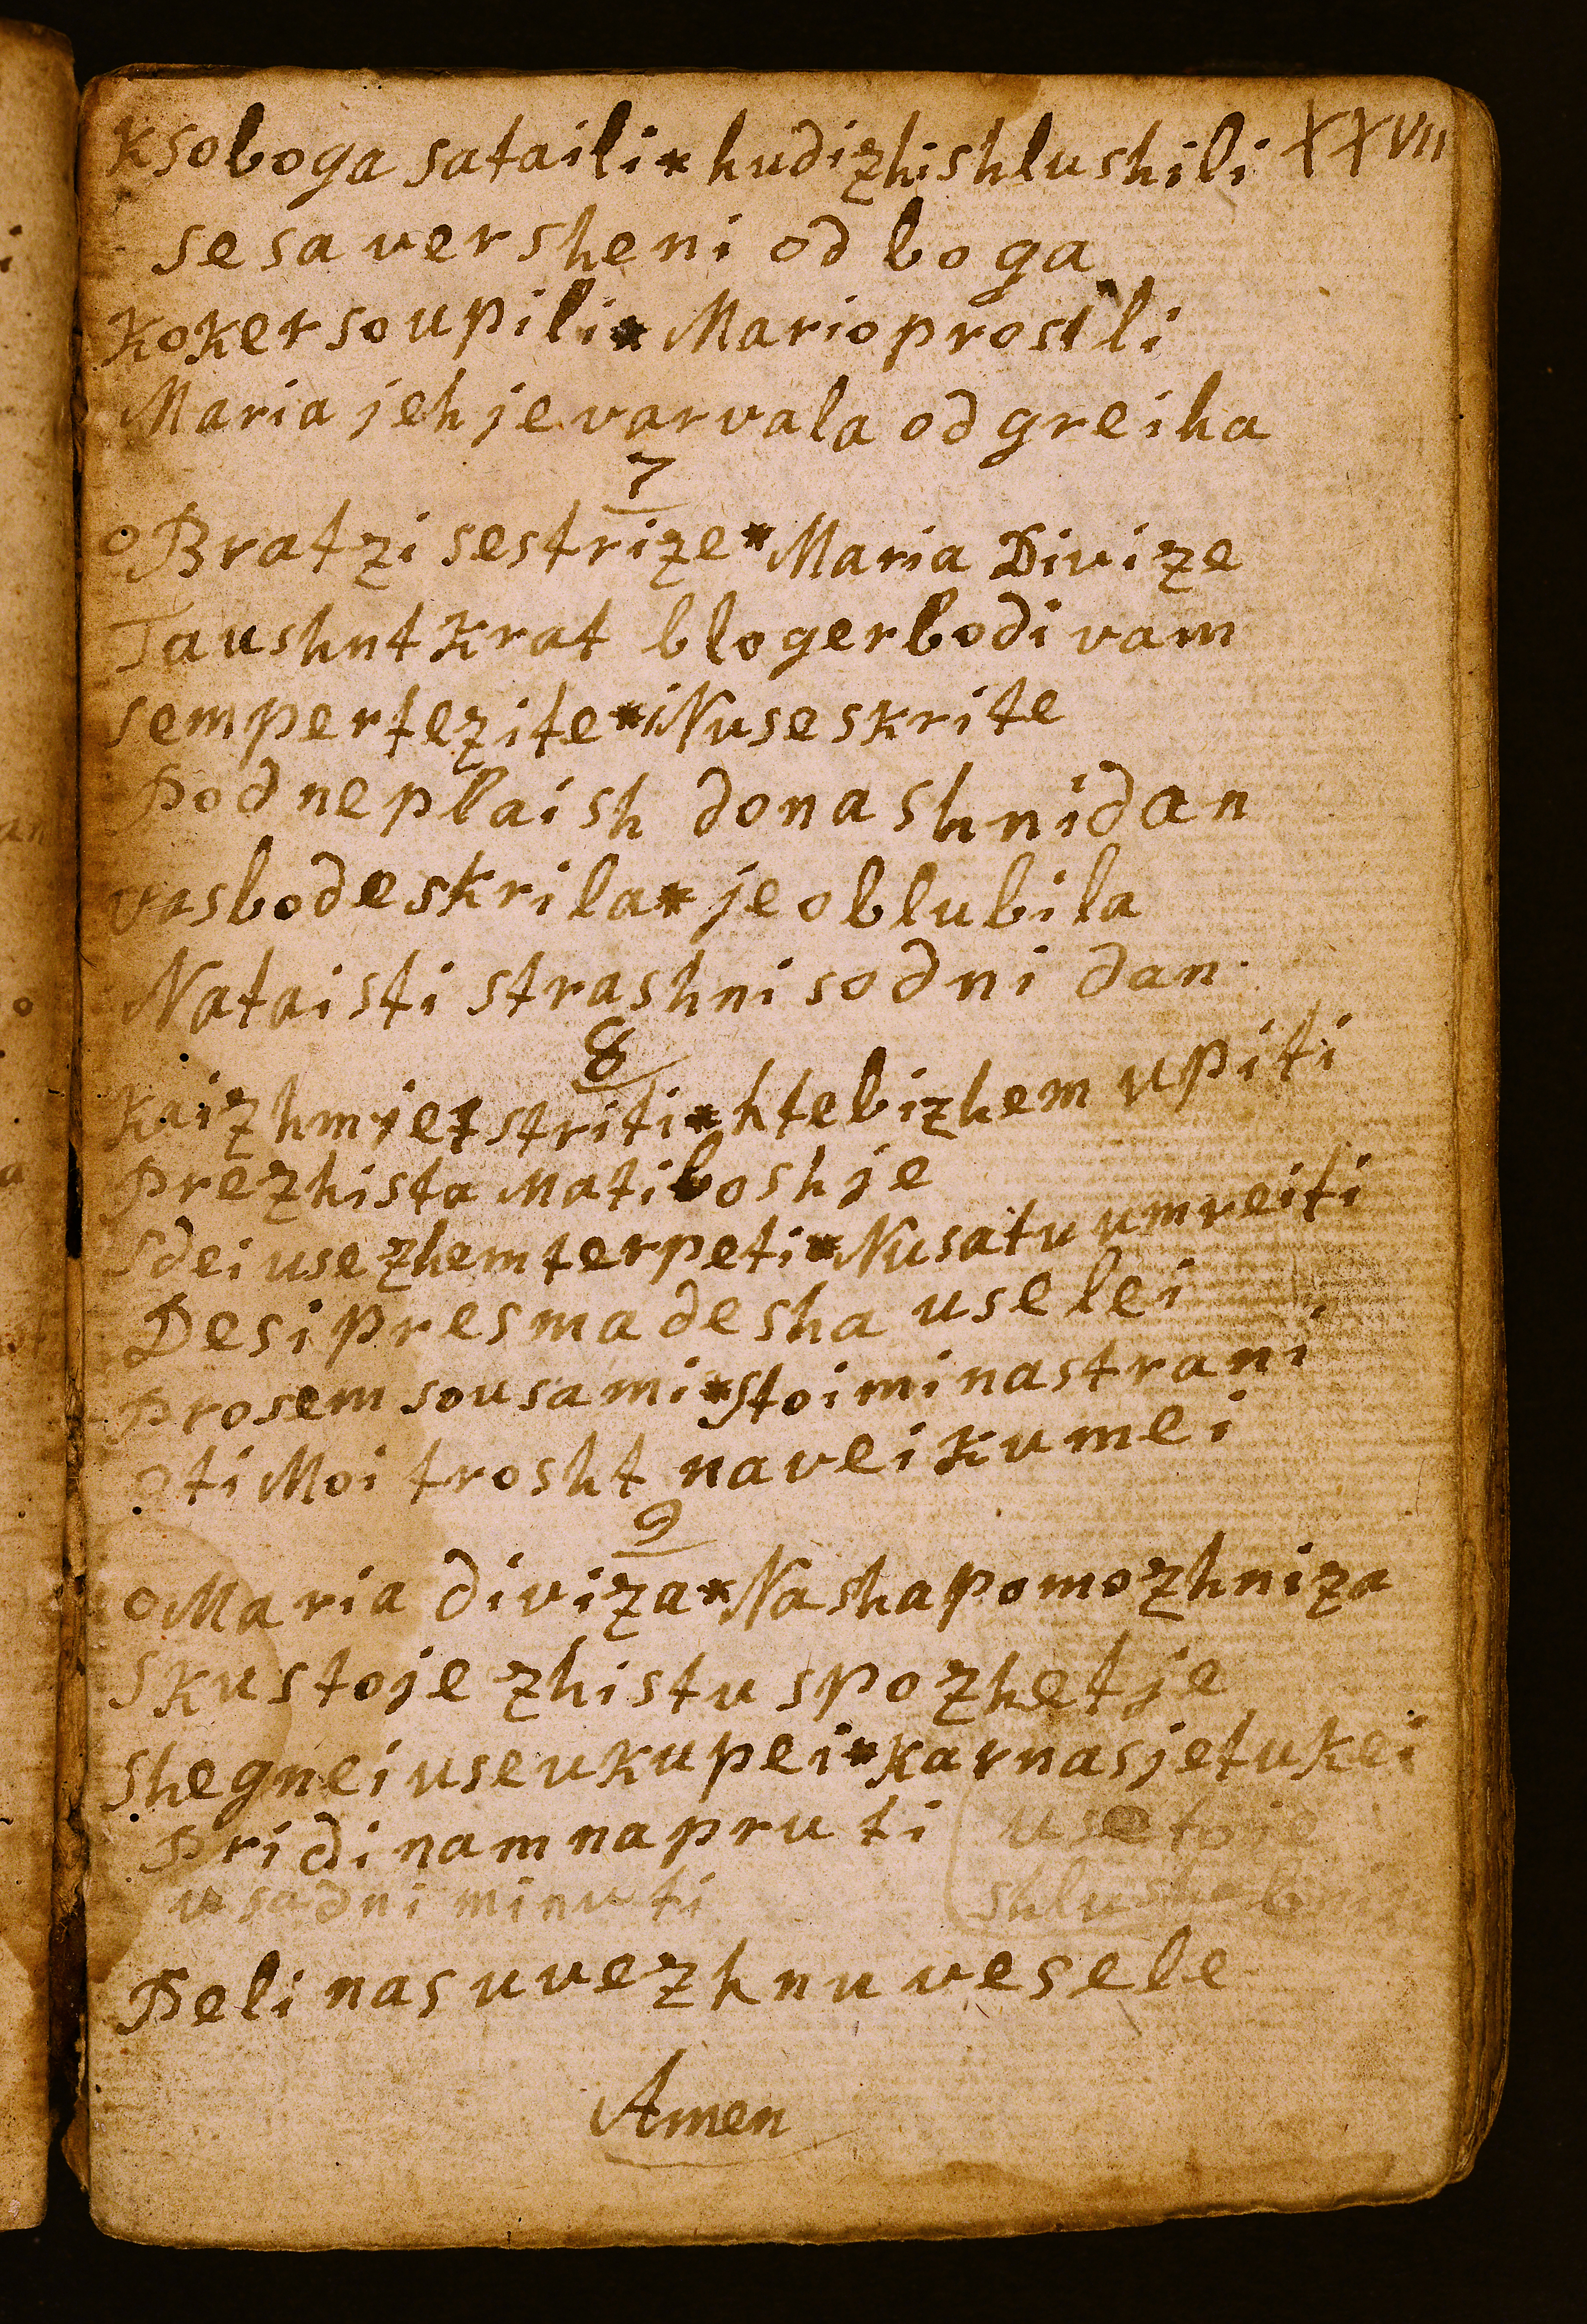 Ksoboga sataili * hudizhi shlushili XXVII
se sa versheni od boga
Koker so upili * Mario prosili
Maria jeh je varvala od greiha
7
o Bratzi sestrize * Maria Divize
Taushnt krat bloger bodi vam
sem pertezite * i Nu se skrite
Pod ne plaish do nashni dan
vas bode skrila * je oblubila
Na taisti strashni sodni dan
8
Kai zhm jet striti * h tebi zhem upiti
Prezhista Mati boshje
Sdei use zhem terpeti * Nu sa tu umreiti
De si pres madesha use lei
Prosem sousami * Stoi mi na strani
o ti Moi trosht na veiku mei
9
o Maria diviza * Nasha pomozhniza
Skus to je zhistu spozhetje
Shegnei use ukupei * kar nas je tukei
Pridi nam na pru ti use to je
v sadni minuti shlushebni
Peli nas u vezhnu vesele
Amen